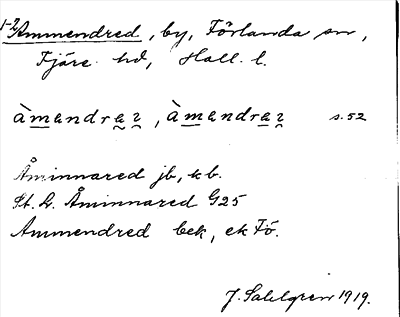 1-2 Ammendred, by, Förlanda sn,
Fjäre hd, Hall. l.
àmandraz, àmandraz s. 52
Åminnared jb, kb.
St. L. Åminnared G25
Ammendred bek, ek Fö.
J. Sahlgren 1919.